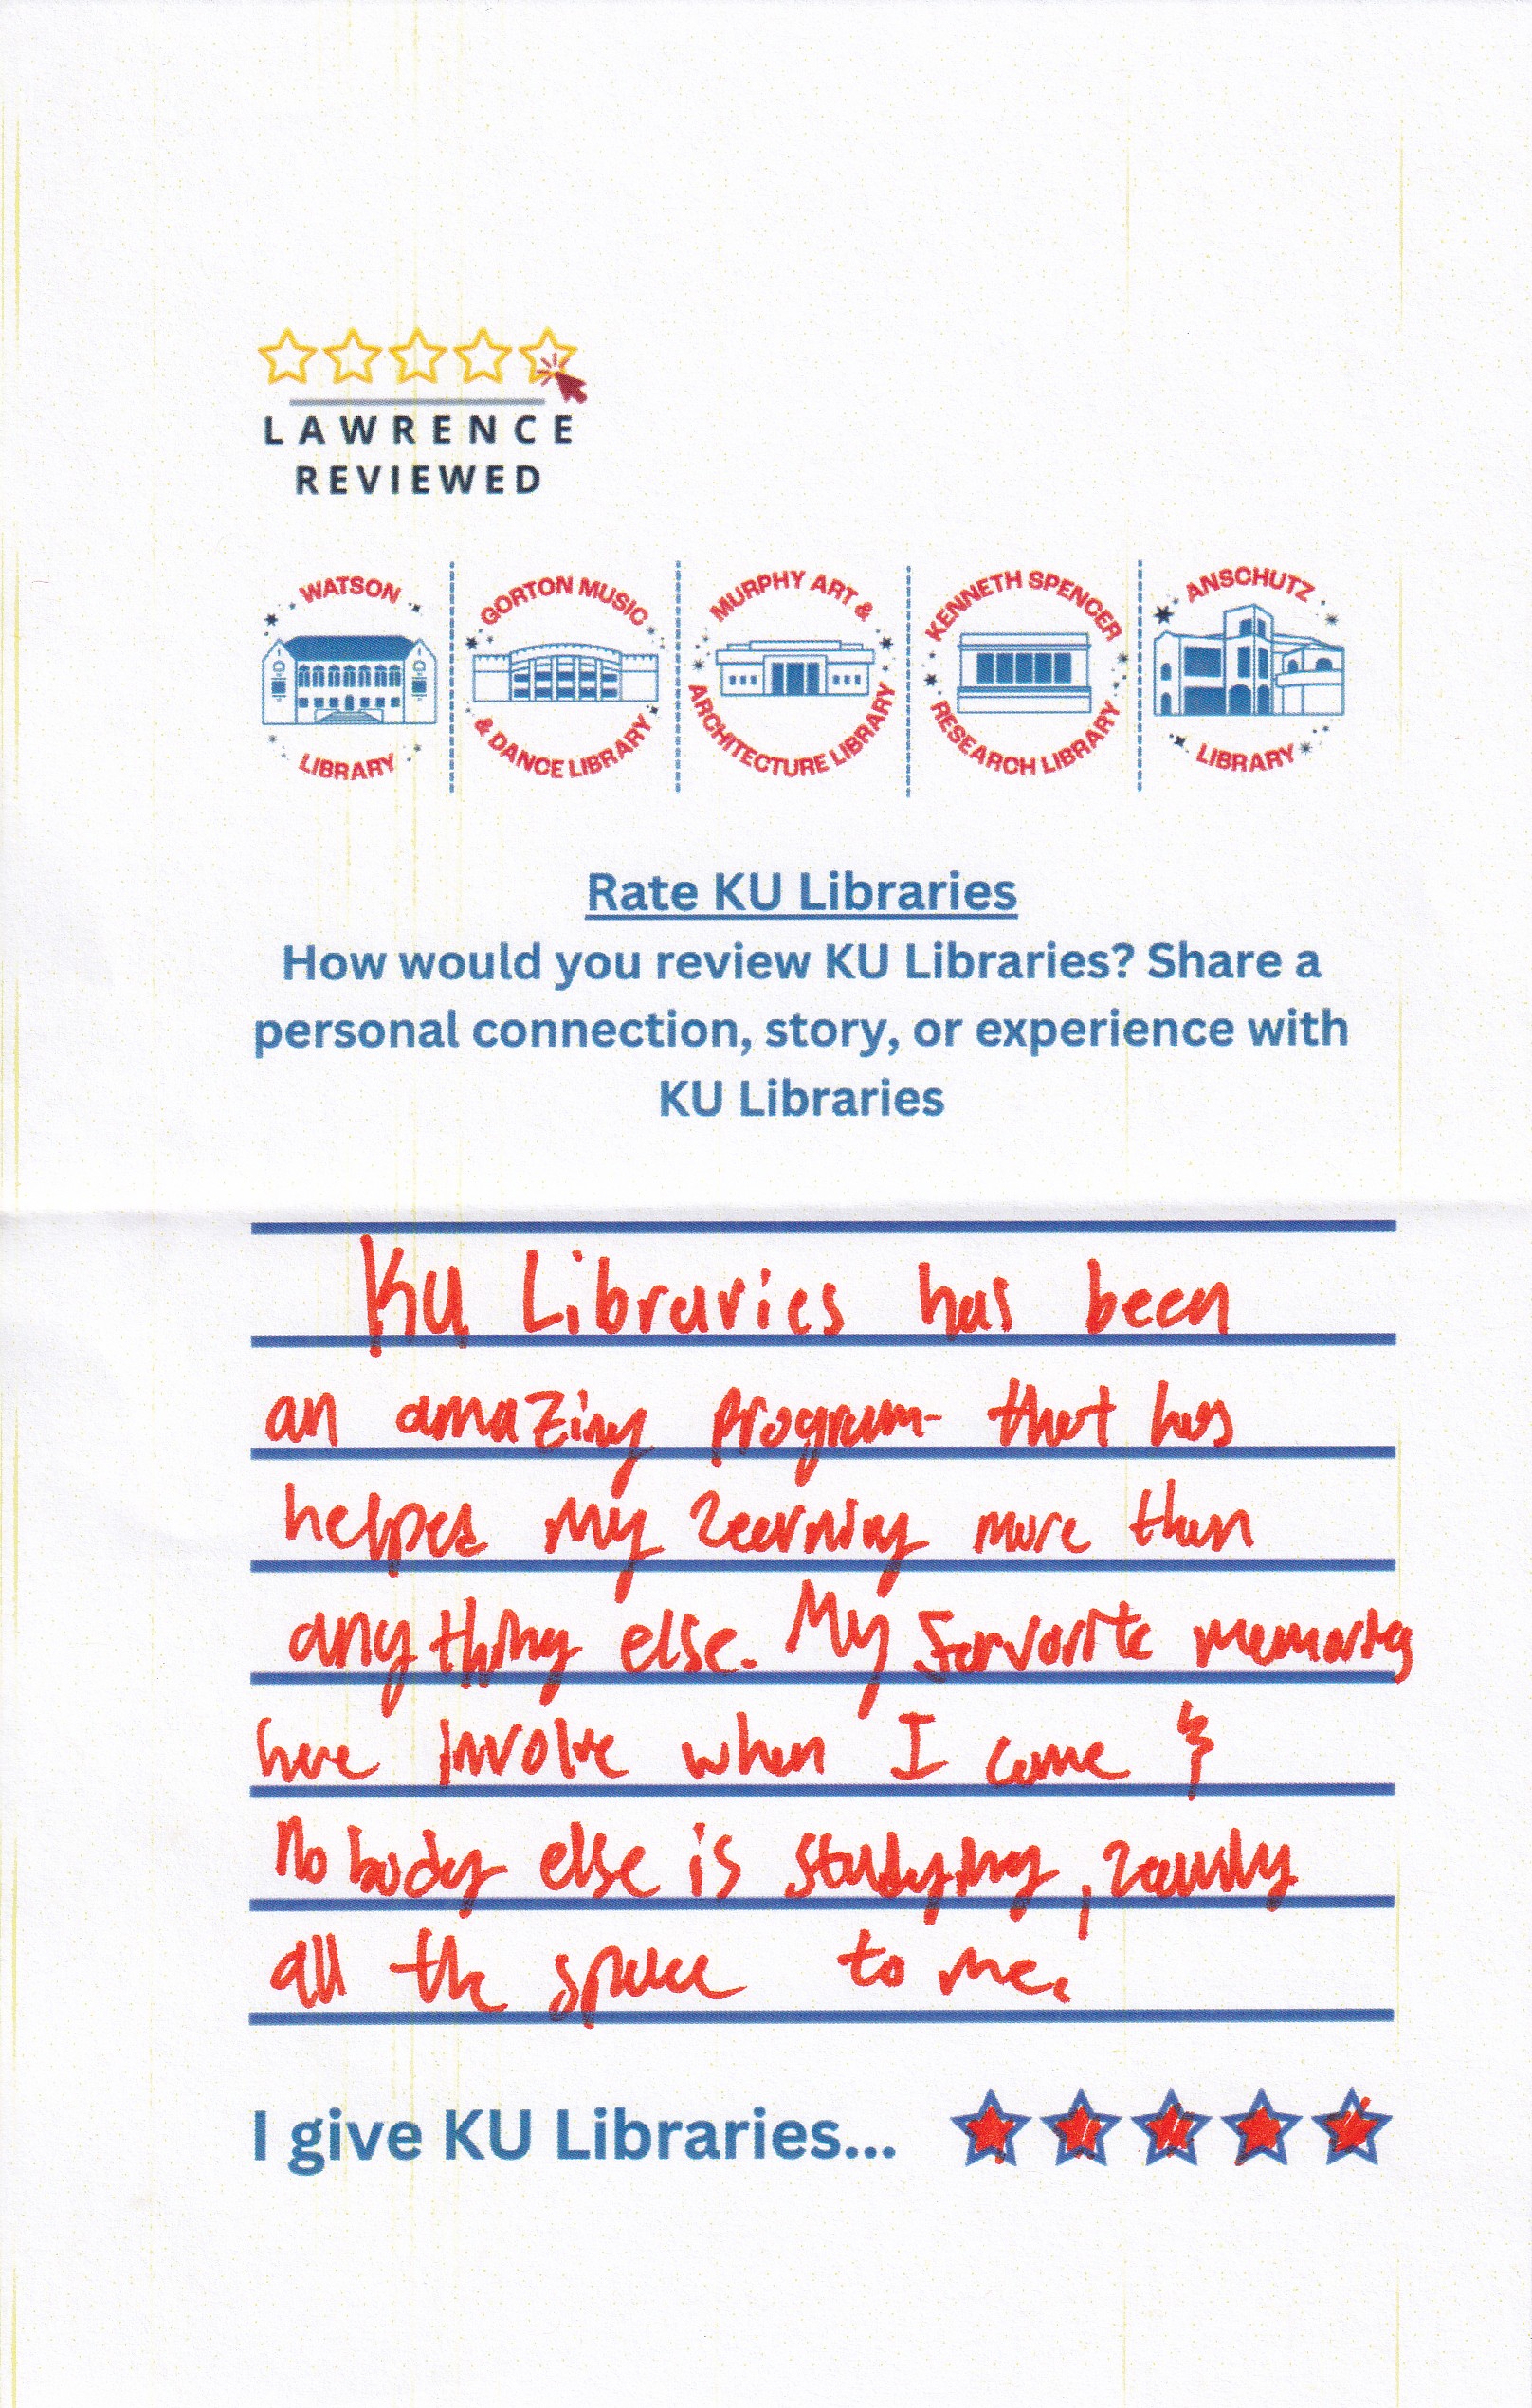 LAWRENCE
REVIEWED
WATSON
LIBRARY
GORTON MUSIC
& DANCE LIBRARY
MURPHY ART &
ARCHITECTURE LIBRARY
KENNETH SPENCER
RESEARCH LIBRARY
ANSCHUTZ
LIBRARY
Rate KU Libraries
How would you review KU Libraries? Share a
personal connection, story, or experience with
KU Libraries
KU Libraries has been
an amazing program that has
helped my learning more than
anything else. My favorite memories
here involve when I come &
nobody else is studying, leaving
all the space to me.
I give KU Libraries...